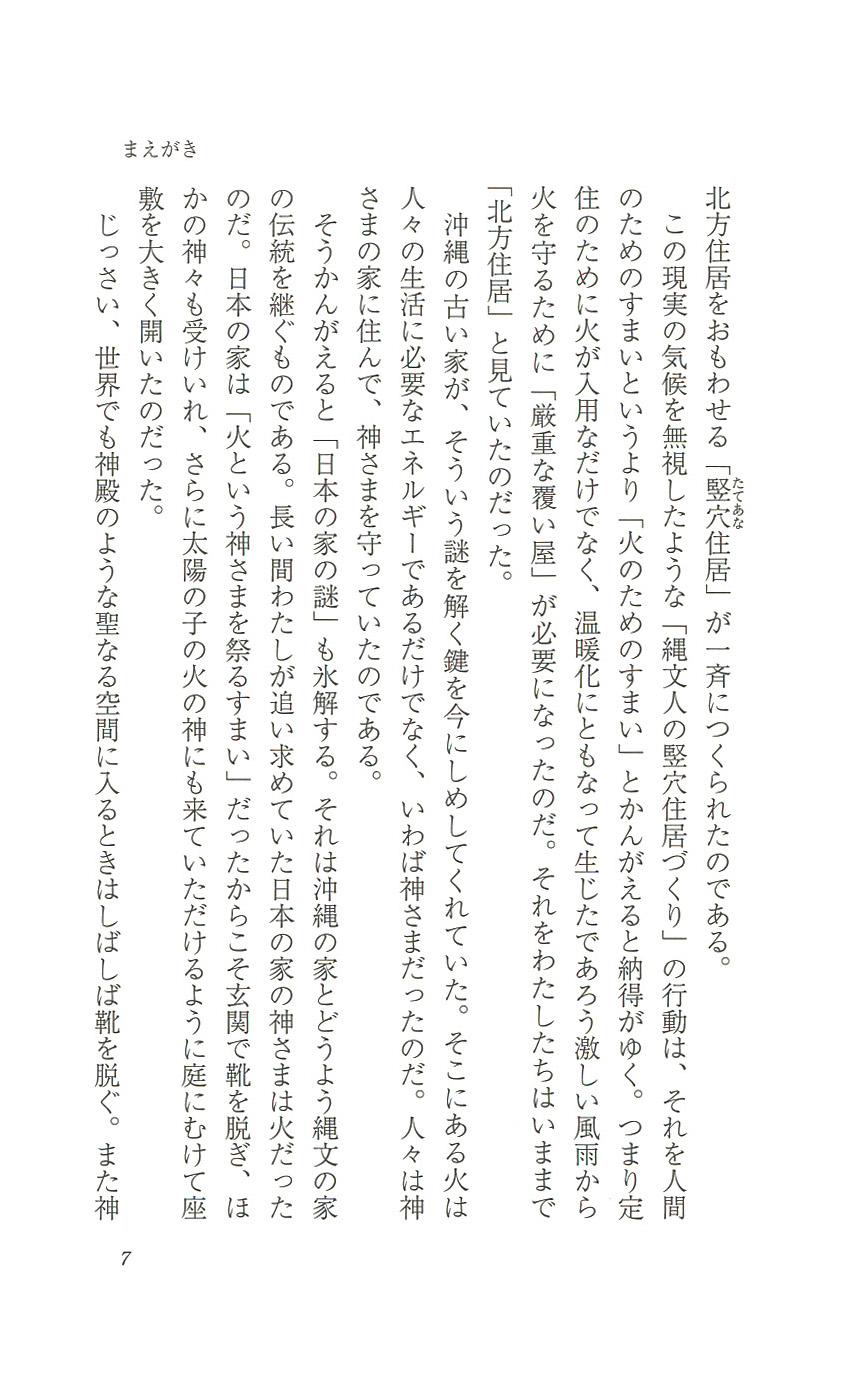 まえがき
北方住居をおもわせる「竪穴住居」が一斉につくられたのである。
たてあな
この現実の気候を無視したような「縄文人の竪穴住居づくり」の行動は、それを人間
のためのすまいというより「火のためのすまい」とかんがえると納得がゆく。つまり定
住のために火が入用なだけでなく、温暖化にともなって生じたであろう激しい風雨から
火を守るために「厳重な覆い屋」が必要になったのだ。それをわたしたちはいままで
「北方住居」と見ていたのだった。
沖縄の古い家が、そういう謎を解く鍵を今にしめしてくれていた。そこにある火は
人々の生活に必要なエネルギーであるだけでなく、いわば神さまだったのだ。人々は神
さまの家に住んで、神さまを守っていたのである。
そうかんがえると「日本の家の謎」も氷解する。それは沖縄の家とどうよう縄文の家
の伝統を継ぐものである。長い間わたしが追い求めていた日本の家の神さまは火だった
のだ。日本の家は「火という神さまを祭るすまい」だったからこそ玄関で靴を脱ぎ、ほ
かの神々も受けいれ、さらに太陽の子の火の神にも来ていただけるように庭にむけて座
敷を大きく開いたのだった。
じっさい、世界でも神殿のような聖なる空間に入るときはしばしば靴を脱ぐ。また神
7